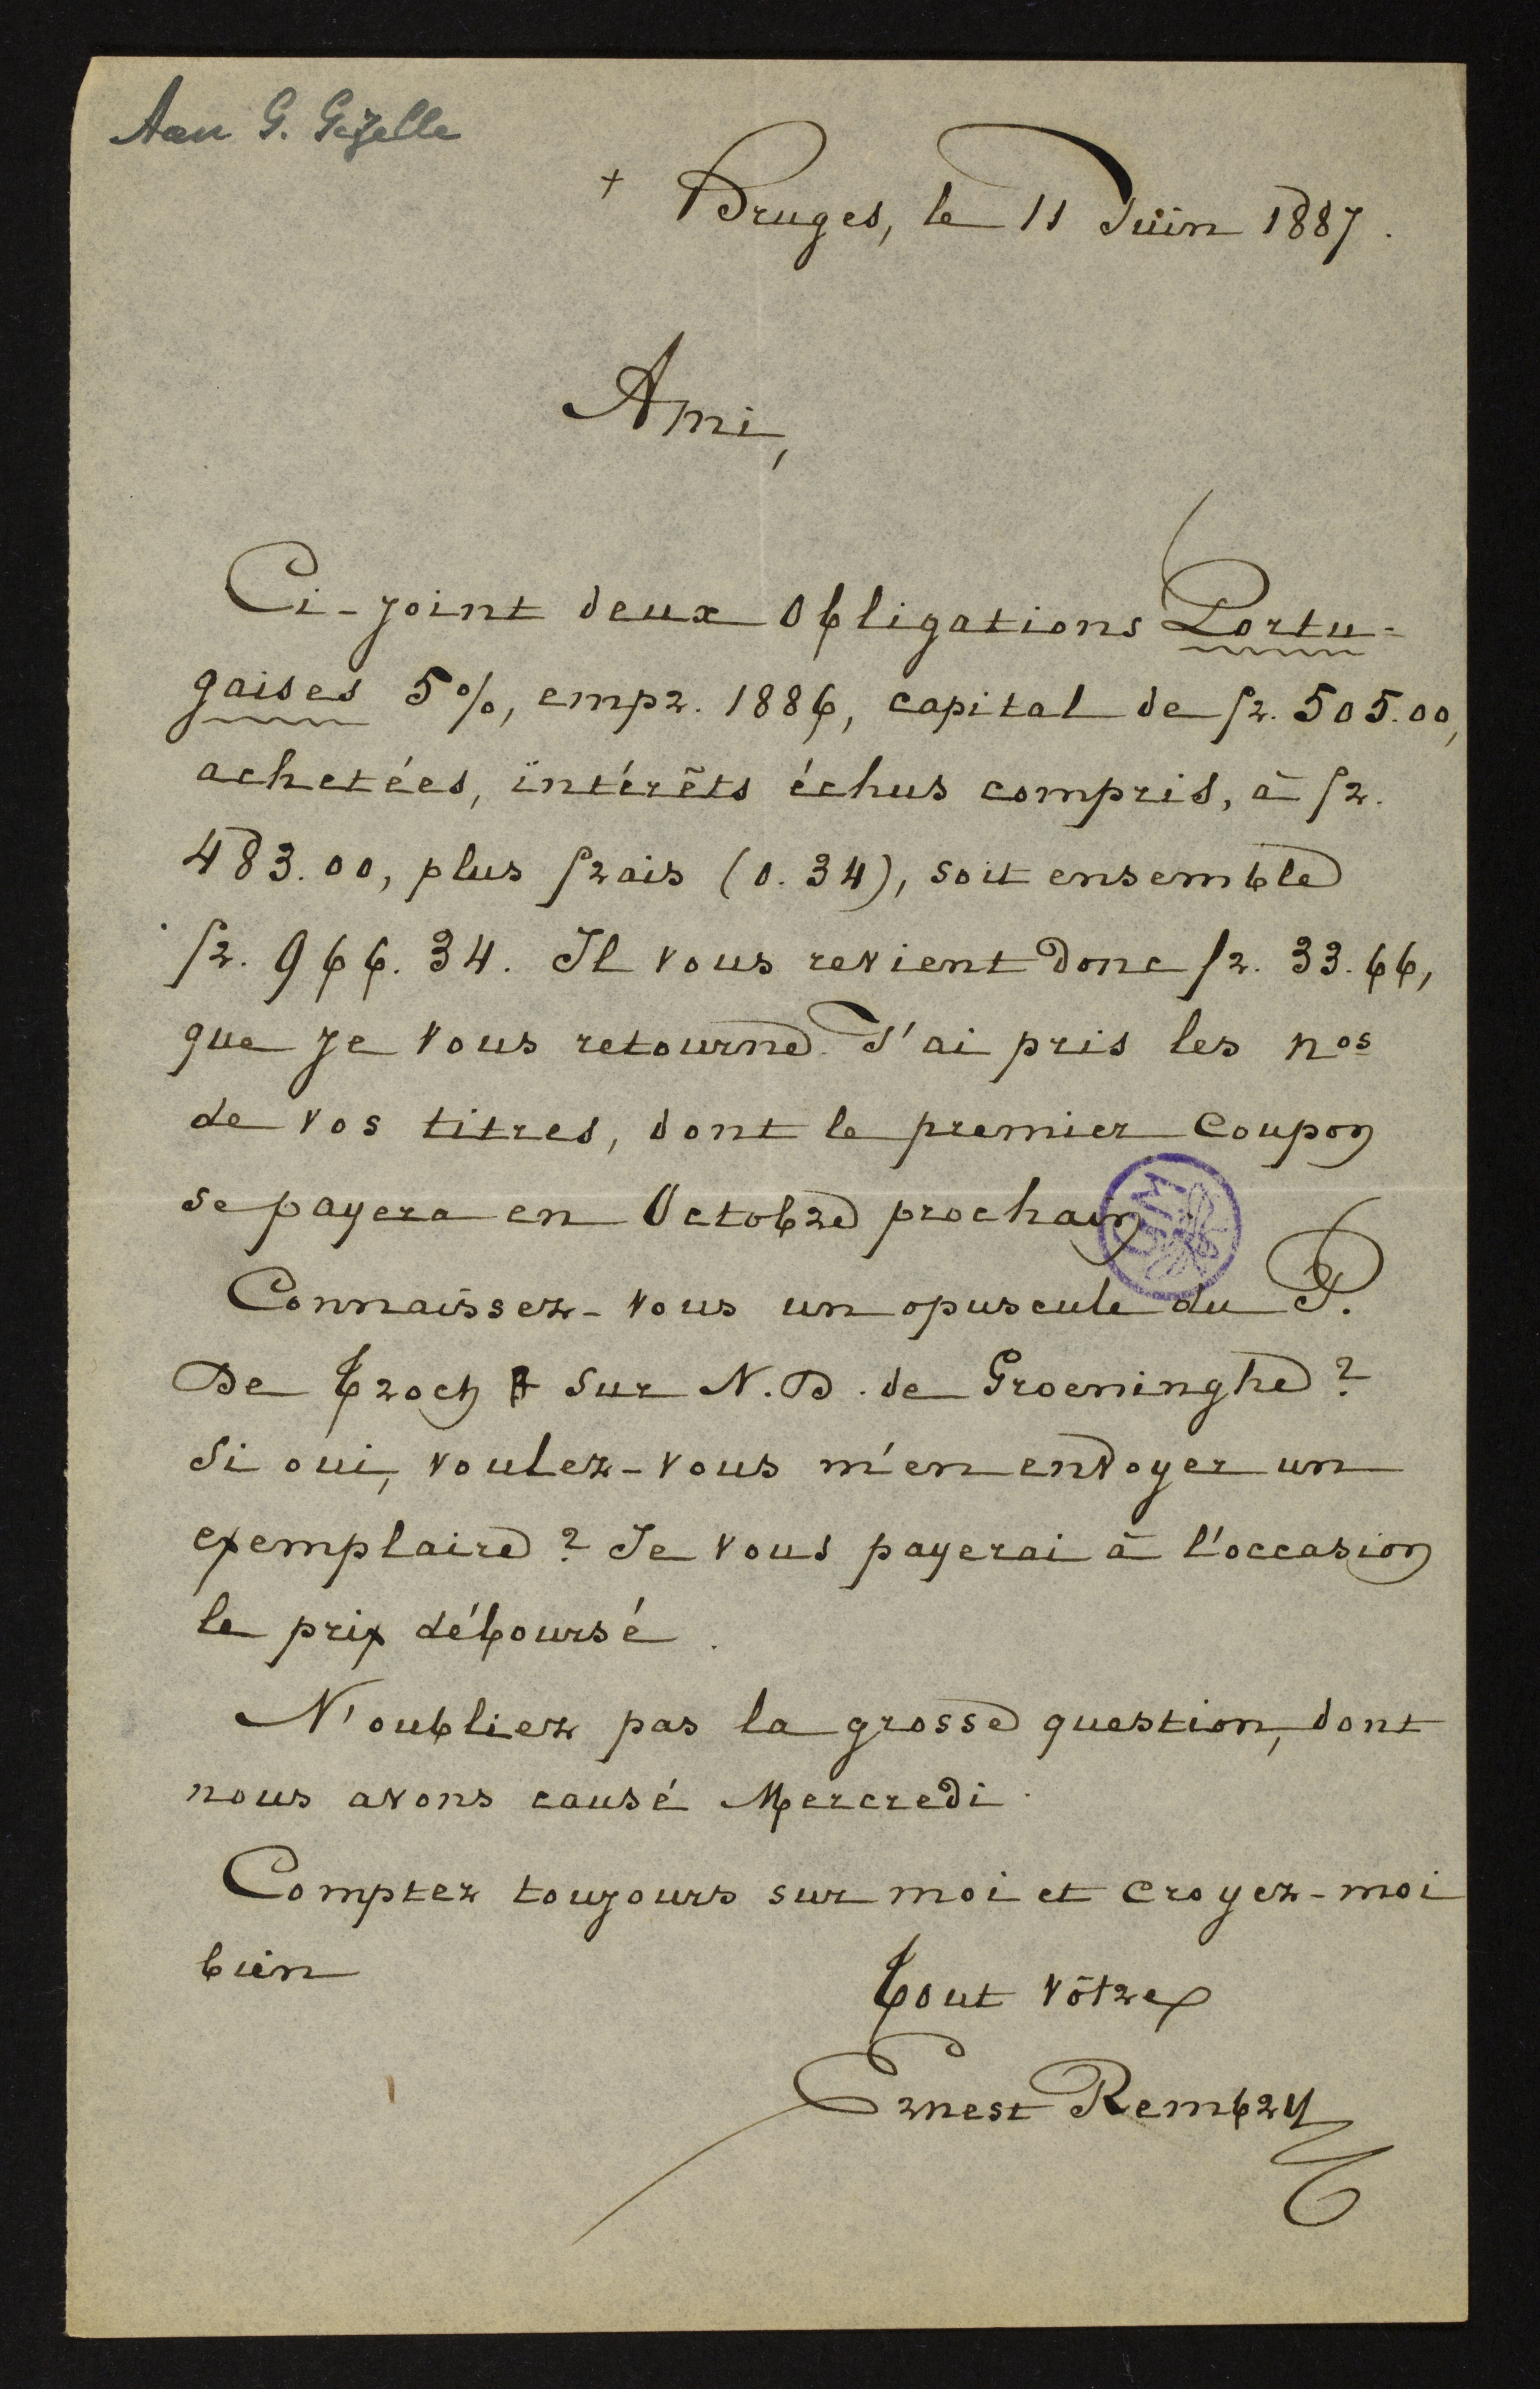 Aan G. Gezelle
+ Bruges, le 11 Juin 1887.
Ami,
Ci-joint deux Obligations Portu-
gaises 5%, empr. 1886, capital de fr. 505.00,
achetées, intérêts échus compris, à fr.
483.00, plus frais (0.34), soit ensemble
fr. 966.34. Il vous revient donc fr. 33.66,
que je vous retourne. J'ai pris les nos
de vos titres, dont le premier coupon
se payera en Octobre prochain.
Connaissez-vous un opuscule du P.
De Troch sur N.D. de Groeninghe ?
Si oui, voulez-vous m'en envoyer un
exemplaire ? Je vous payerai à l'occasion
le prix déboursé.
N'oubliez pas la grosse question, dont
nous avons causé Mercredi.
Comptez toujours sur moi et croyez-moi
bien
Tout vôtre
Ernest Rembry